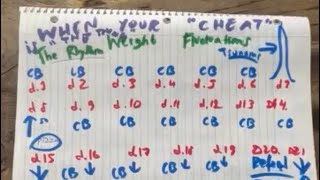 WHEN YOUR "CHEAT"
The Rhythm Weight Fluctuations
CB CB CB CB CB CB
d.2 d.3 d.4 d.5 d.6 d.7
d.8 d.9 d.10 d.11 d.12 d.13 d.14
CB CB CB CB CB CB
d.15 d.16 d.17 d.18 d.19 D20. D21
CB CB CB CB CB Repeat